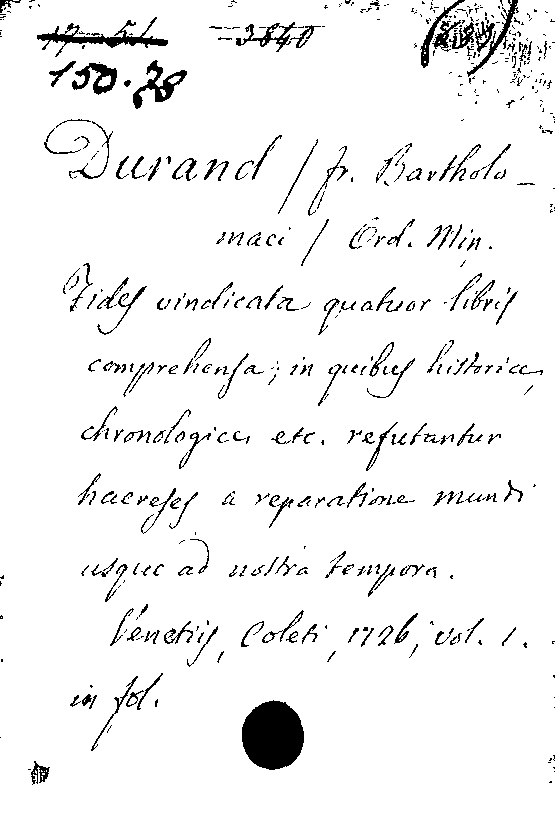 17. 5. 1. 3840
150.78
Durand / fr. Bartholo-
maei / Ord. Min.
Fides vindicata quatuor libris
comprehensa; in quibus historice,
chronologice, etc. refutantur
haereses a reparatione mundi
usque ad nostra tempora.
Venetiis, Coleti, 1726, vol. 1.
in fol.